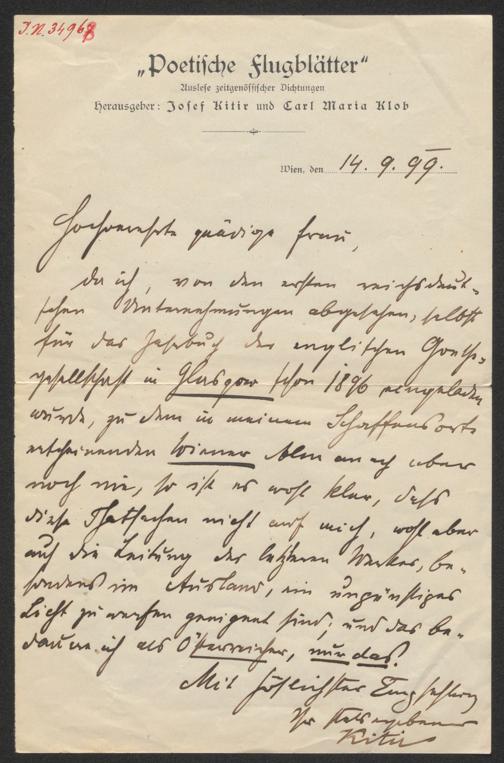 J.N. 34968
„Poetische Flugblätter“
Auslese zeitgenössischer Dichtungen
Herausgeber: Josef Kitir und Carl Maria Klob
Wien, den 14. 9. 99.
Hochverehrte gnädige Frau,
Da ich, von den ersten reichsdeut-
schen Unternehmungen abgesehen, selbst
für das Jahrbuch der englischen Goethe-
gesellschaft in Glasgow schon 1896 eingeladen
wurde, zu dem in meinem Schaffensorte
erscheinenden Wiener Almanach aber
noch nie, so ist es wohl klar, daß
diese Thatsachen nicht auf mich, wohl aber
auf die Leitung des letzteren Werkes, be-
sonders im Ausland, ein ungünstiges
Licht zu werfen geeignet sind; und das be-
daure ich als Österreicher, nur das.
Mit höflichster Empfehlung
Ihr stets ergebener
Kitir